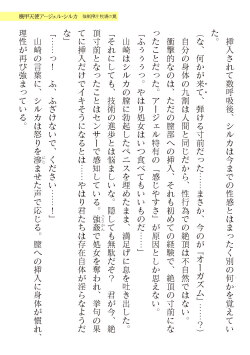 機甲天使アージェル・シルカ
挿入されて数呼吸後、シルカは今までの性感とはまったく別の何かを覚えてい
た。
（な、何かが来て、弾ける寸前だった……　まさか、今のが『オーガズム』……？）
自分の身体の九割は人間と同じだから、性行為での絶頂は不自然ではない。
衝撃的なのは、ただの膣部への挿入、それも初めての経験で、絶頂の寸前にな
ったことだった。アージェル特有の『感じやすさ』が原因としか思えない。
「ふぅぅぅっ。やはり処女はいつ食べてもたまらないものだ」
山崎はシルカの膣に勃起したペニスを埋めたまま、満足げに息を吐き出した。
「それにしても、技術の進歩とは悩ましいな。隠しても無駄だぞ？　君が今、絶
頂寸前となったことはセンサーで感知している。強姦で処女を奪われ、挙句の果
てに挿入だけでイキそうになるとは……やはり君たちは存在自体が淫らなようだ
な」
「……っ！　ふ、ふざけないでください……！」
山崎の言葉に、シルカは怒りを滲ませた声で応じる。膣への挿入に身体が慣れ、
理性が再び強まっている。